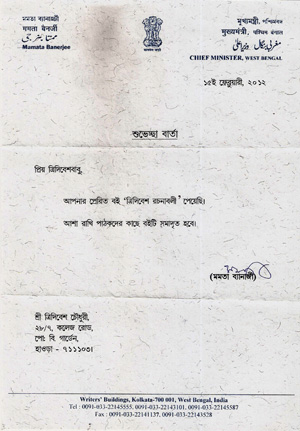 মমতা ব্যানার্জী
ममता बॅनर्जी
Mamata Banerjee
মুখ্যমন্ত্রী, পশ্চিমবঙ্গ
CHIEF MINISTER, WEST BENGAL
১৫ই ফেব্রুয়ারী, ২০১২
শুভেচ্ছা বার্তা
প্রিয় ত্রিদিবেশবাবু,
আপনার প্রেরিত বই 'ত্রিদিবেশ রচনাবলী' পেয়েছি।
আশা রাখি পাঠকদের কাছে বইটি সমাদৃত হবে।
(মমতা ব্যানার্জী)
শ্রী ত্রিদিবেশ চৌধুরী,
২৮/৭, কলেজ রোড,
পোঃ বি. গার্ডেন,
হাওড়া - ৭১১১০৩।
Writers' Buildings, Kolkata-700 001, West Bengal, India
Tel : 0091-033-22145555, 0091-033-22143101, 0091-033-22145587
Fax : 0091-033-22141137, 0091-033-22143528